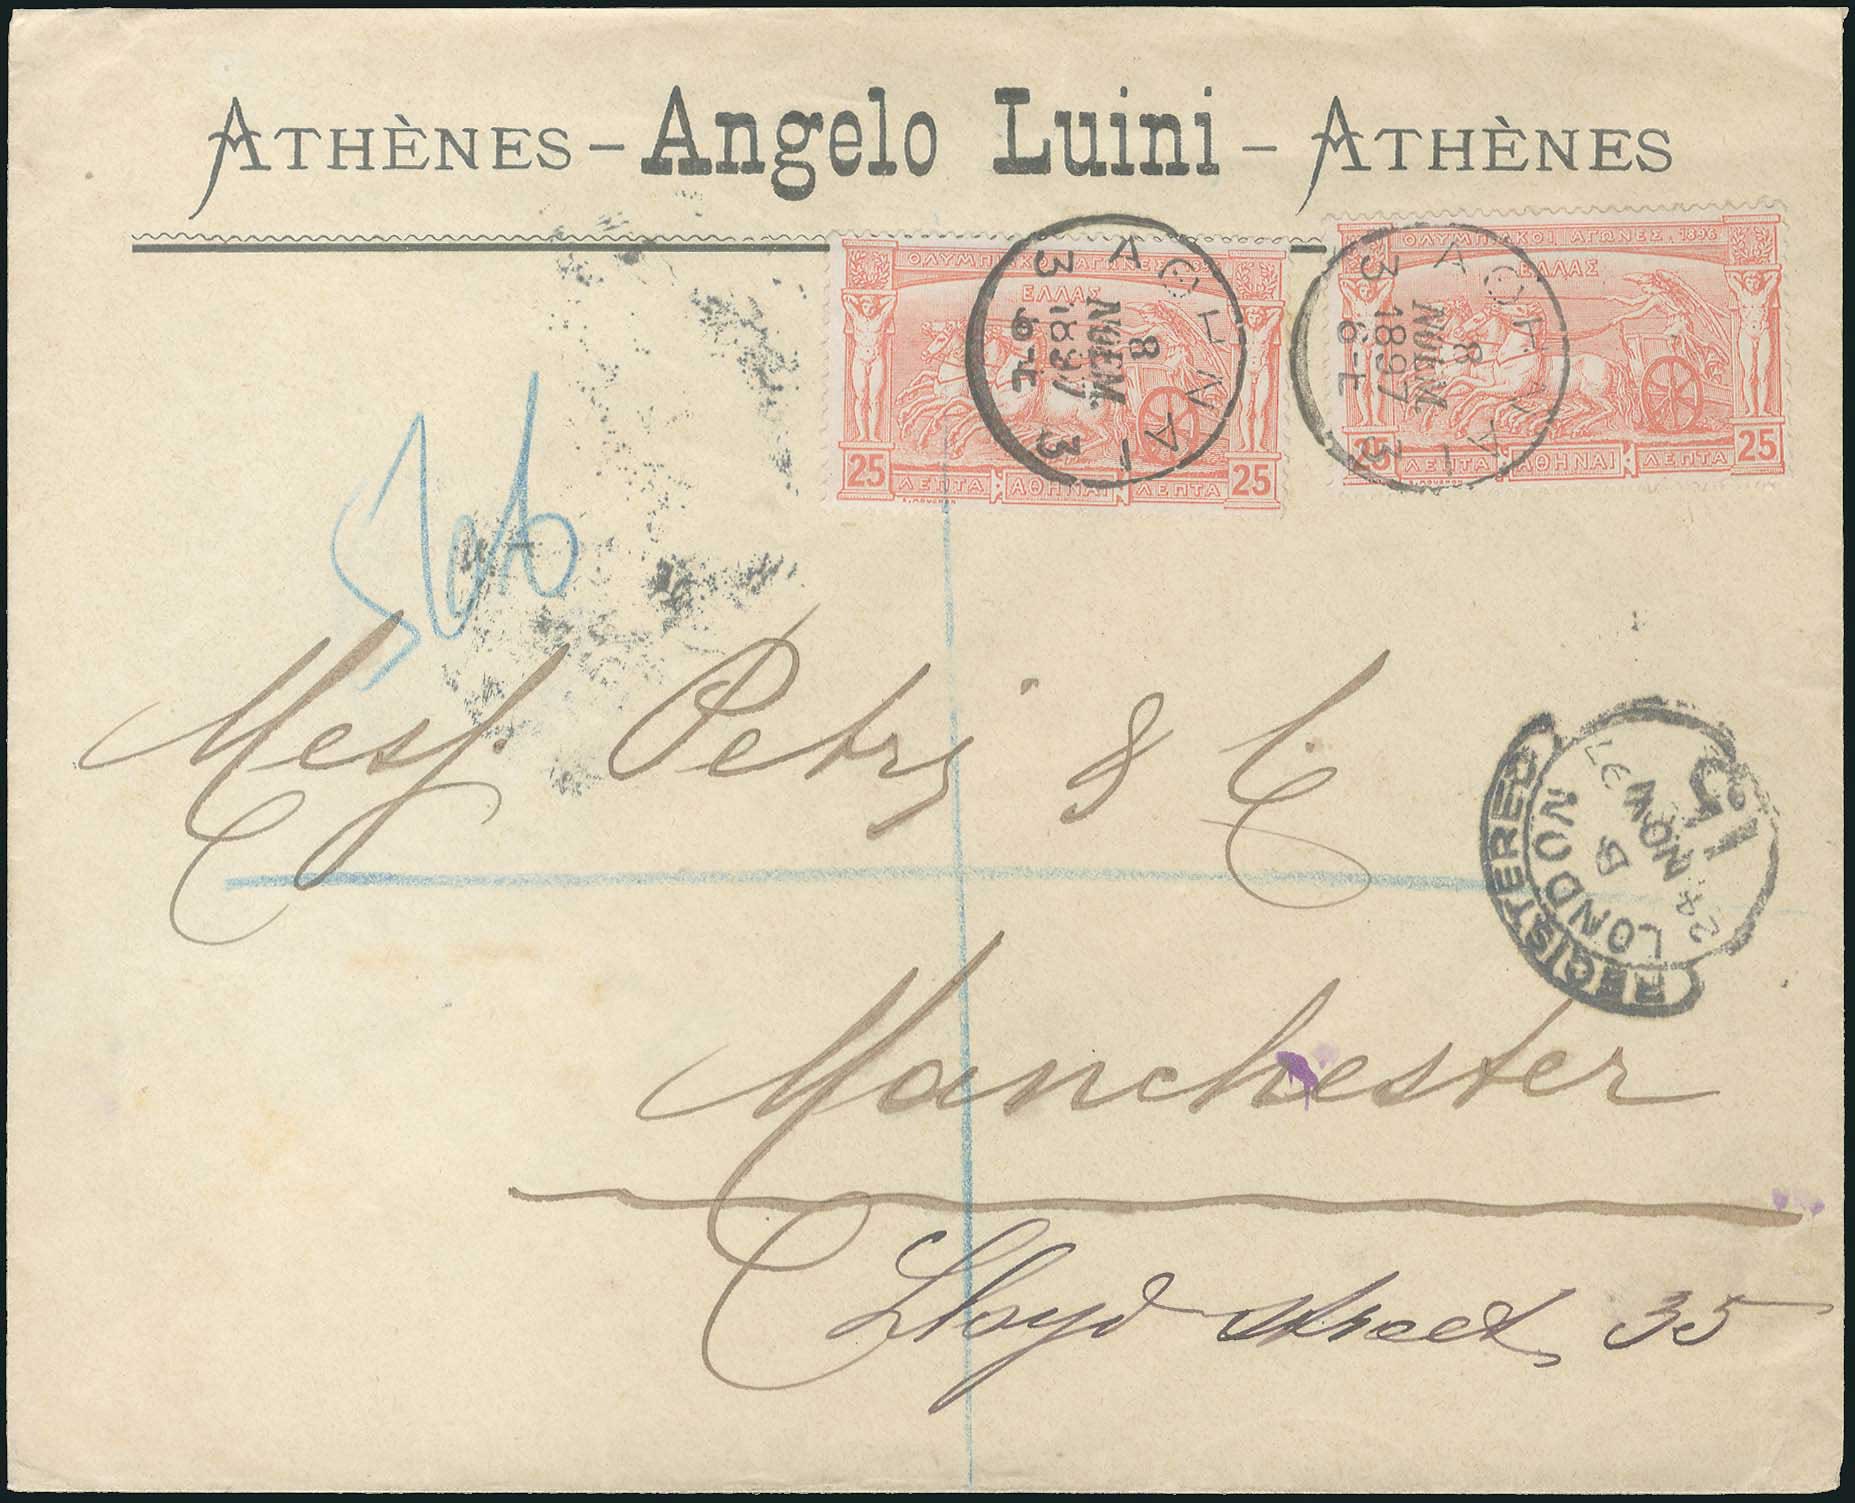 ATHÈNES – Angelo Luini – ATHÈNES
ΟΛΥΜΠΙΑΚΟΙ ΑΓΩΝΕΣ
ΕΛΛΑΣ
25 ΛΕΠΤΑ ΑΘΗΝΑΙ ΛΕΠΤΑ 25
ΑΘΗΝΑΙ 3
8
ΝΟΕΜ.
1897
3
ΟΛΥΜΠΙΑΚΟΙ ΑΓΩΝΕΣ. 1896
ΕΛΛΑΣ
25 ΛΕΠΤΑ ΑΘΗΝΑΙ ΛΕΠΤΑ 25
ΑΘΗΝΑΙ 3
8
ΝΟΕΜ.
1897
3
Mess. Petri & C.
REGISTERED
LONDON
NOV 97
15
Manchester
Lloyd street 35